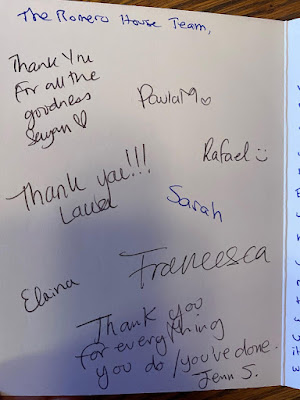 The Romero House Team,
Thank You
For all the
goodness
Sayan
Paula M
Rafael :)
Thank you!!!
Laura
Sarah
Francesca
Elaina
Thank you
for everything
you do / you've done.
Jenn S.